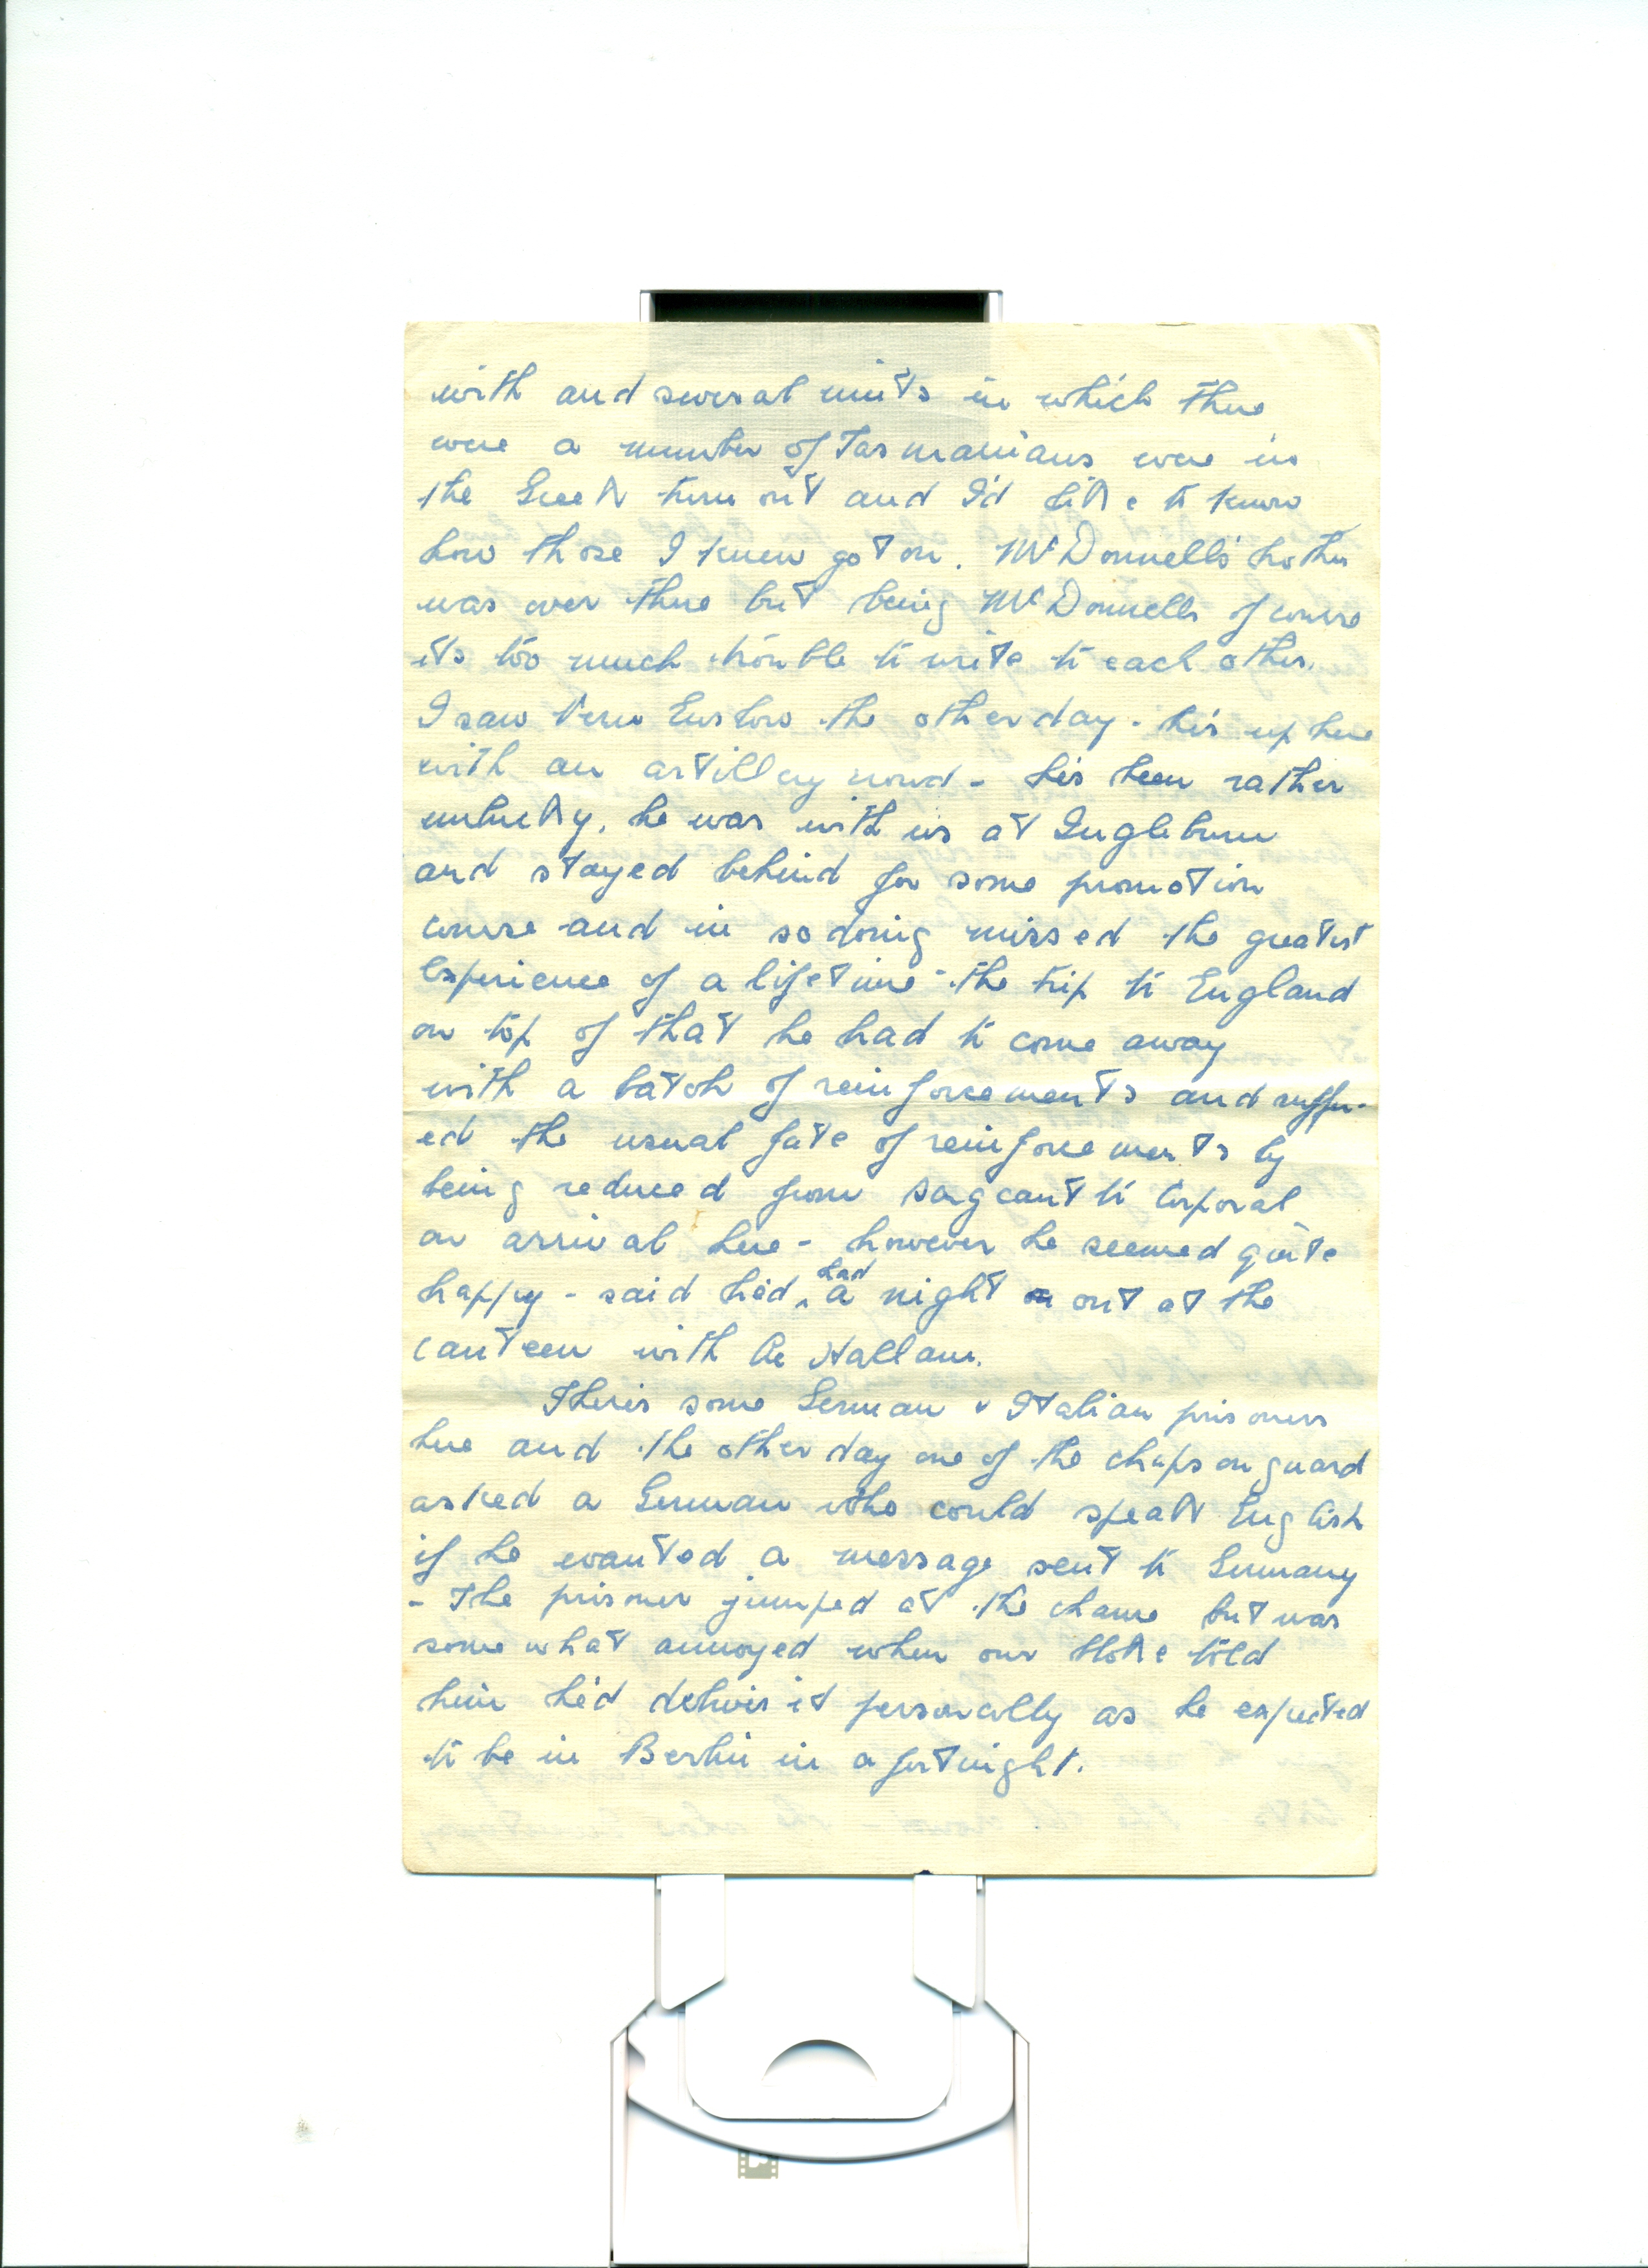 with and several units in which there
were a number of Tasmanians were in
the Greek turn out and I'd like to know
how those I knew got on. McDonnells' brother
was over there but being McDonnells of course
its too much trouble to write to each other.
I saw Vern the other day - he's up here
with an artillery crowd - he's been rather
unlucky, he was with us at Ingleburn
and stayed behind for some promotion
course and in so doing missed the greatest
experience of a lifetime - the trip to England
on top of that he had to come away
with a batch of reinforcements and suffer-
ed the usual fate of reinforcements by
being reduced from sargeant to Corporal
on arrival here - however he seemed quite
happy - said he'd had a night out at the
canteen with Hallam.
There's some German & Italian prisoners
here and the other day one of the chaps on guard
asked a German who could speak English
if he wanted a message sent to Germany
- The prisoner jumped at the chance but was
somewhat annoyed when our bloke told
him he'd deliver it personally as he expected
to be in Berlin in a fortnight.